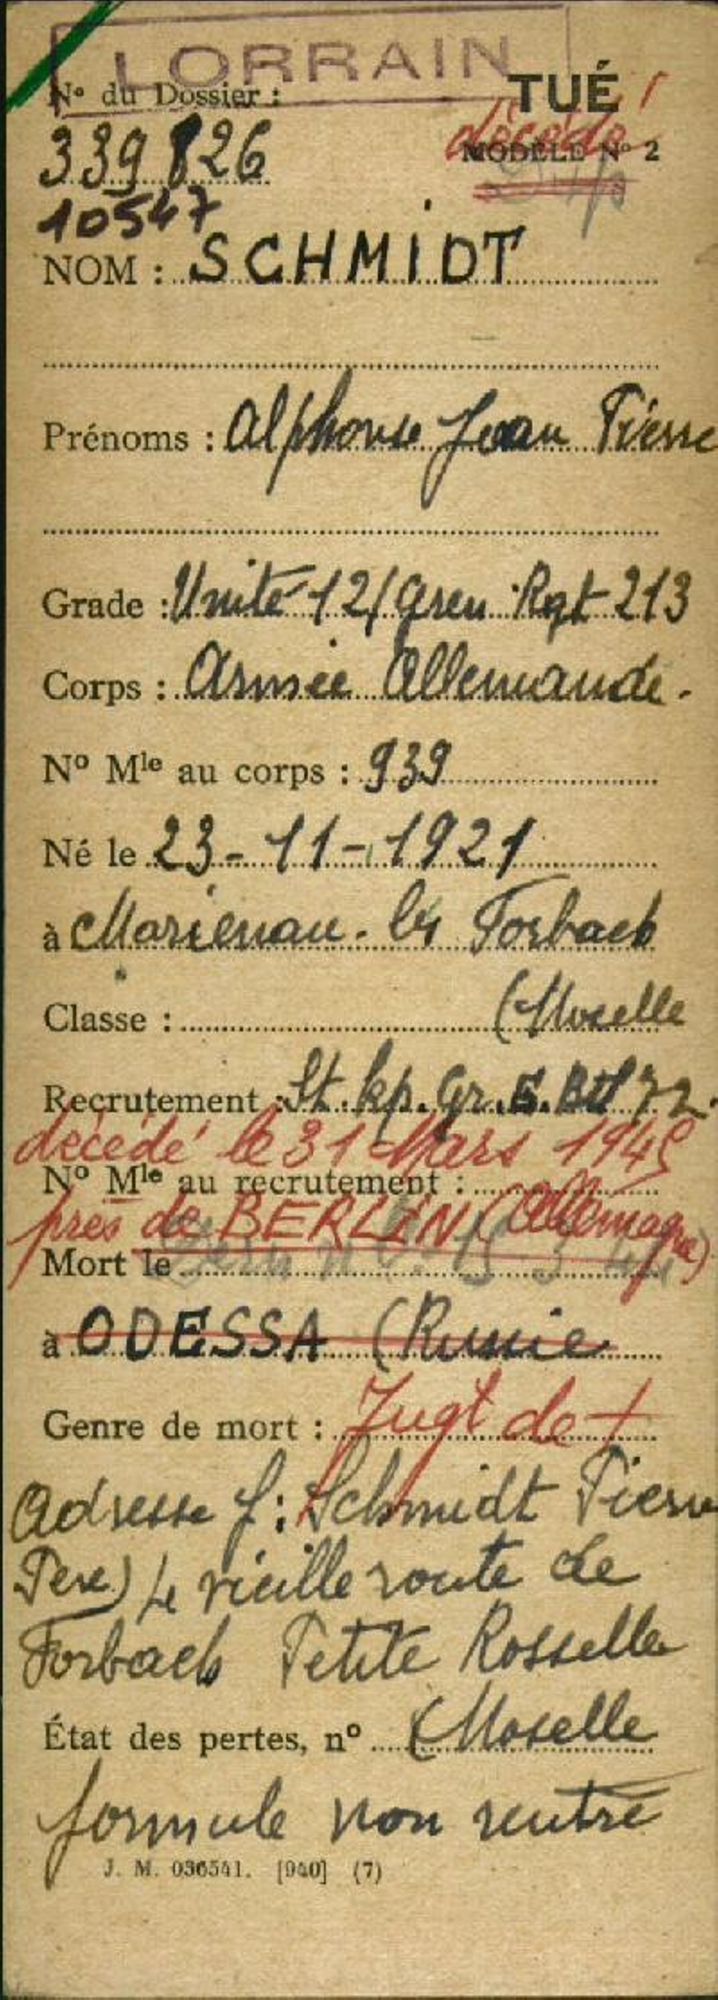 LORRAIN
N° du Dossier :
TUÉ
décédé
339 826
MODÈLE N° 2
10547
NOM : SCHMIDT
Prénoms : Alphonse Jean Pierre
Grade : Unité 12/Gren Rgt 213
Corps : Armée Allemande.
N° Mle au corps : 939
Né le 23-11-1921
à Marienau. les Forbach
Classe : (Moselle
Recrutement : St. kp. Gr. E. Btl 72.
décédé le 31 Mars 1945
N° Mle au recrutement :
près de BERLIN (Allemagne)
Mort le
à ODESSA (Russie
Genre de mort : Jugt de
Adresse f: Schmidt Pierre
Père) 4 vieille route de
Forbach Petite Rosselle
État des pertes, n° (Moselle
formule non rentré
J. M. 036541. [940] (7)